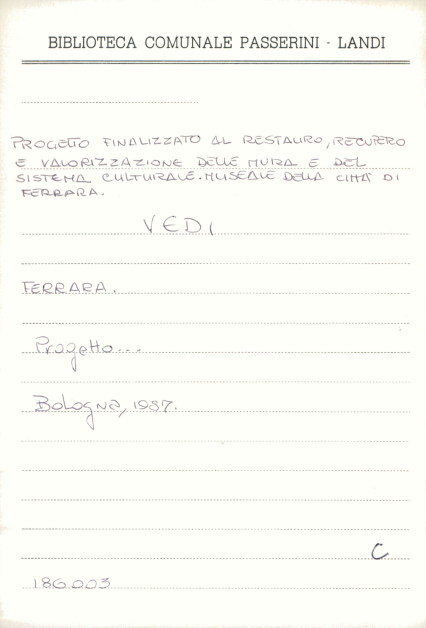 BIBLIOTECA COMUNALE PASSERINI - LANDI
PROGETTO FINALIZZATO AL RESTAURO, RECUPERO
E VALORIZZAZIONE DELLE MURA E DEL
SISTEMA CULTURALE-MUSEALE DELLA CITTÀ DI
FERRARA.
VEDI
FERRARA.
Progetto...
Bologna, 1987.
C
186.003